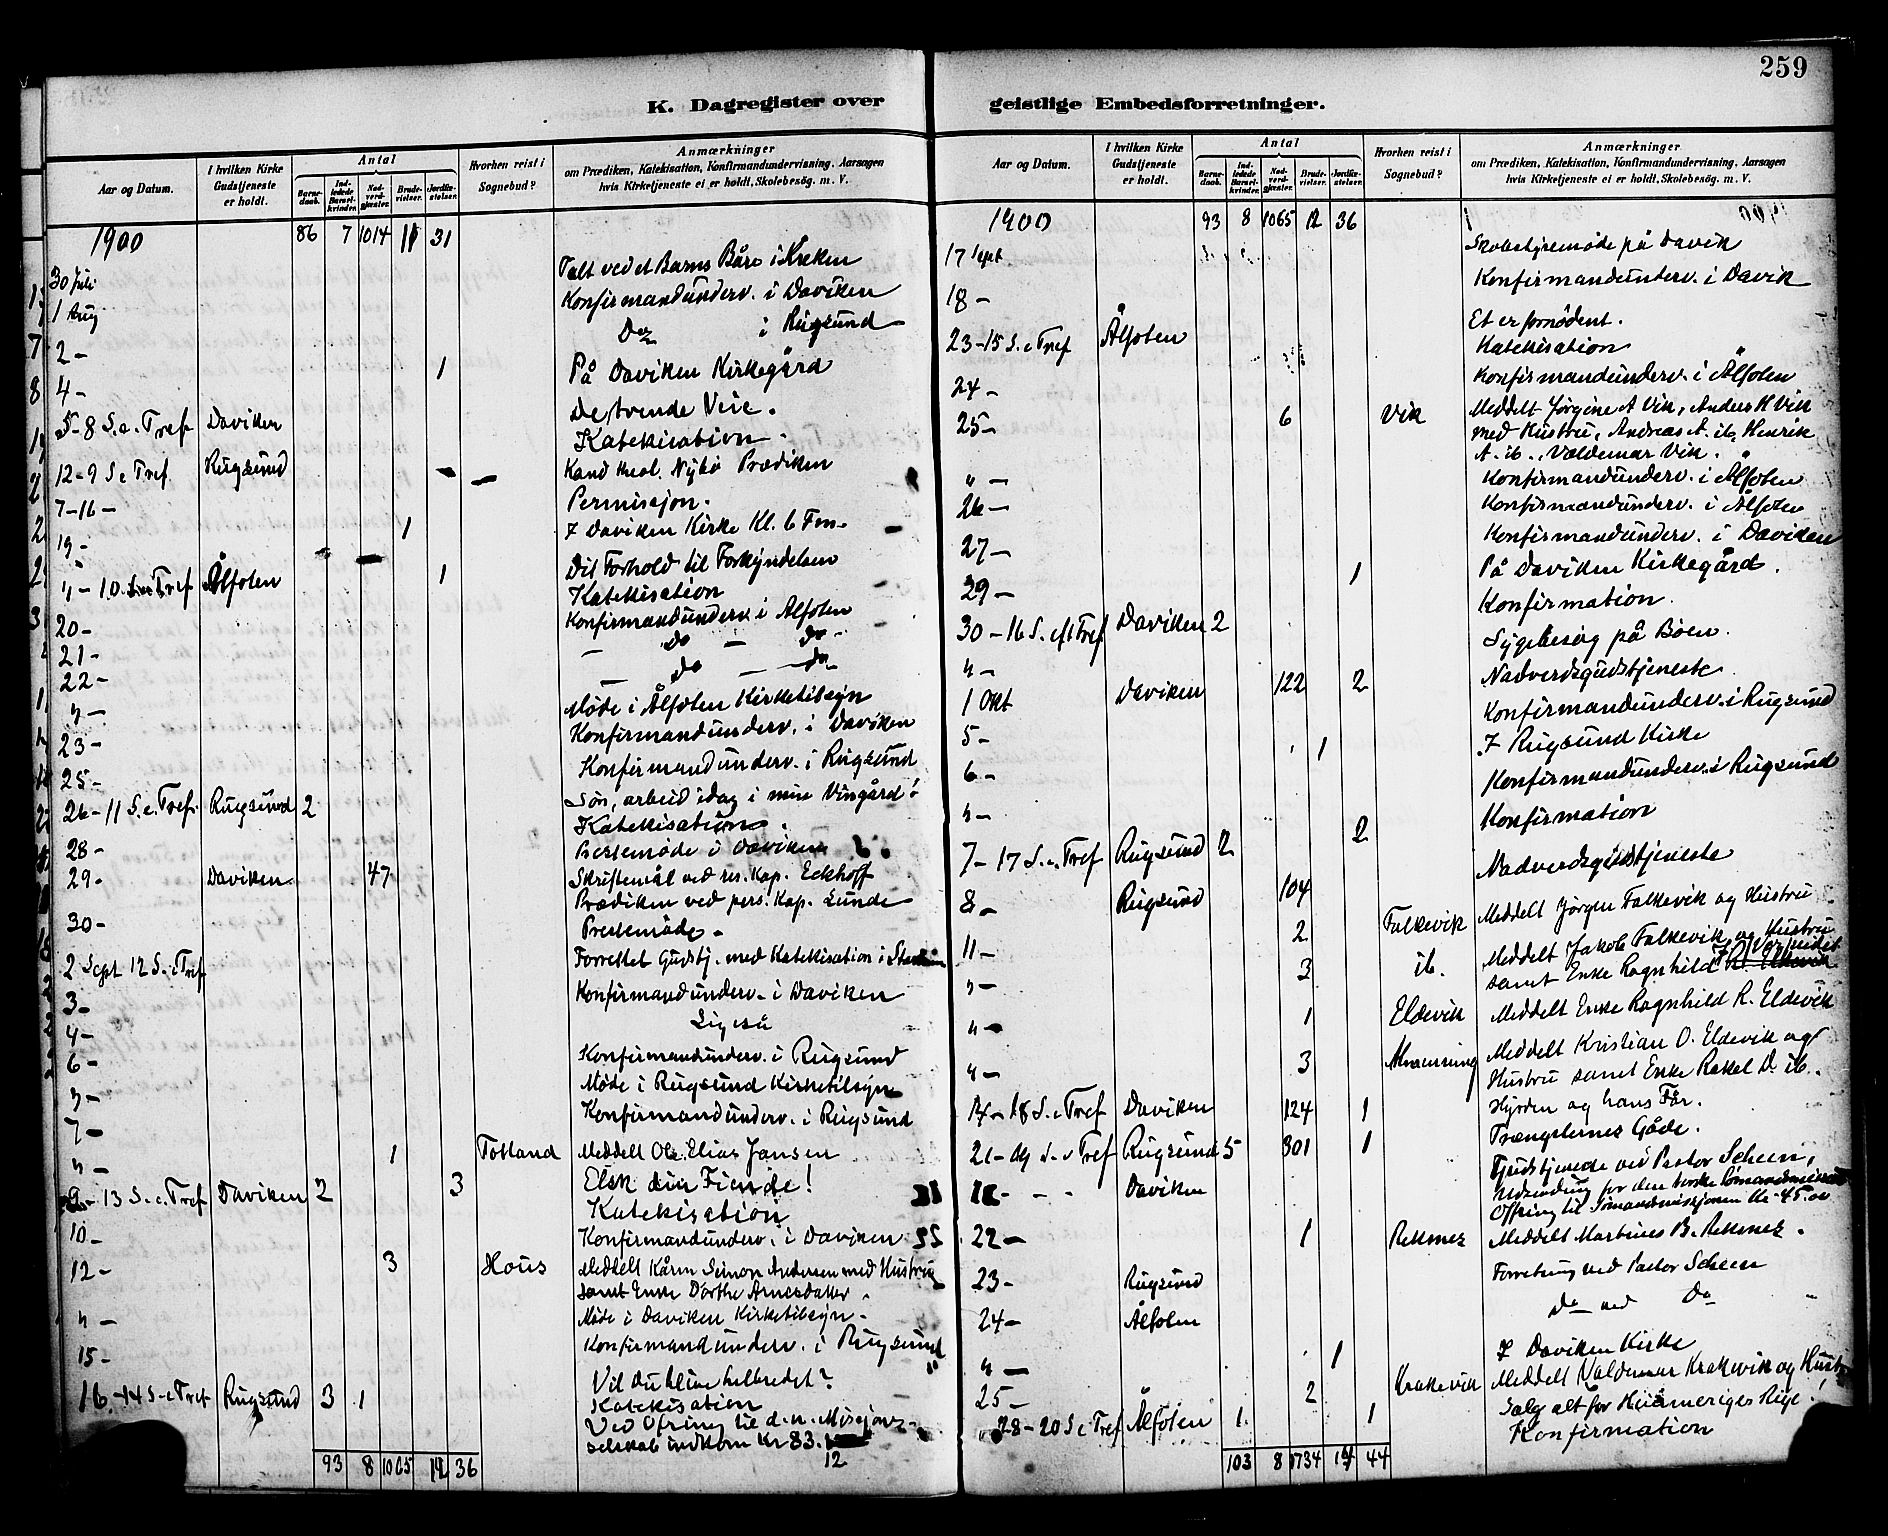 259
K. Dagregister over geistlige Embedsforretninger.
Aar og Datum. I hvilken Kirke Gudstjeneste er holdt. Antal Barnedaab. Indledede Barselkvinder. Nadverdgjæster. Brudevielser. Jordfæstelser. Hvorhen reist i Sognebud? Anmærkninger om Prædiken, Katekisation, Konfirmandundervisning, Aarsagen hvis Kirketjeneste ei er holdt, Skolebesøg. m. V.
1900 86 7 1014 11 31
30 Juli Talt ved et Barns Båre i Kirken
1 Aug Konfirmandunderv. i Daviken
2 - Do i Rugsund
4 - 1 På Daviken Kirkegård
5 - 8 S. e. Tref Daviken De tvende Veie.
Katekisation.
12 - 9 S e Tref. Rugsund Kand theol. Nybø Prædiken
7-16 - Permisjon.
19 - 1 I Daviken Kirke Kl. 6 Fm.
" - 10. S e Tref Ålfoten 1 Dit Forhold til Forkyndelsen
Katekisation
20 - Konfirmandunderv. i Ålfoten
21 - — Do — Do -
22 - — Do — Do
" - Møde i Ålfoten Kirketilsyn
23 - Konfirmandunderv. i Daviken
25 - Konfirmandunderv. i Rugsund
26 - 11 S. e. Tref. Rugsund 2 Søn, arbeid idag i min Vingård!
Katekisation.
28 - Prestemøde i Daviken
29 - Daviken 47 Skriftemål ved res. Kap. Eckhoff
Prædiken ved pers. Kap. Lunde
30 - Prestemøde.
2 Sept 12 S. e Tref Forrettet Gudstj. med Katekisation i
3 - Konfirmandunderv. i Daviken
4 - Ligeså
6 - Konfirmandunderv. i Rugsund
" - Møde i Rugsund Kirketilsyn
7 - Konfirmandunderv. i Rugsund
" - 1 Totland Meddelt Ole Elias Jansen
9 - 13 S. e. Tref Daviken 2 3 Elsk din Fiende!
Katekisation
10 - Konfirmandunderv. i Daviken
12 - 3 Hous Meddelt Kårm Simon Andersen med Hustru
samt Enke Dorthe Arnesdatter.
" - Møde i Daviken Kirketilsyn.
15 - Konfirmandunderv. i Rugsund
16 - 14 S - e Tref Rugsund 3 1 Vil du blive helbredet?
Katekisation
Ved Ofring til d. n. Misjons-
selskab indkom Kr 83.
12
93 8 1065 12 36
Aar og Datum. I hvilken Kirke Gudstjeneste er holdt. Antal Barnedaab. Indledede Barselkvinder. Nadverdgjæster. Brudevielser. Jordfæstelser. Hvorhen reist i Sognebud? Anmærkninger om Prædiken, Katekisation, Konfirmandundervisning, Aarsagen hvis Kirketjeneste ei er holdt, Skolebesøg. m. V.
1900 93 8 1065 12 36
17 Sept Skolestyremøde på Davik
18 - Konfirmandunderv. i Davik
23 - 15 S. e Tref Ålfoten Et er fornødent.
Katekisation
24 - Konfirmandunderv. i Ålfoten
25 - 6 Vik Meddelt Jørgine A Vik, Anders H Vik
med Hustru, Andreas A. ib, Henrik
A. ib., Valdemar Vik.
" - Konfirmandunderv. i Ålfoten
26 - Konfirmandunderv. i Ålfoten
27 - Konfirmandunderv. i Daviken
29 - 1 På Daviken Kirkegård.
30 - 16 S. eft Tref Daviken 2 Konfirmation.
" - Sygebesøg på Bøen.
1 Okt Daviken 122 2 Nadverdsgudstjeneste
5 - Konfirmandunderv. i Rugsund
6 - 1 I Rugsund Kirke
" - Konfirmandunderv. i Rugsund
7 - 17 S. e. Tref Rugsund 2 2 Konfirmation
8 - Rugsund 104 Nadverdsgudstjeneste
11 - 2 Falkevik Meddelt Jørgen Falkevik og Hustru
" - 3 ib. Meddelt Jakob Falkevik og Hustru
samt Enke Ragnhild
" - 1 Eldevik Meddelt Enke Ragnhild R. Eldevik
" - 3 Meddelt Kristian O. Eldevik og
Hustru samt Enke Rakel D. ib.
14 - 18 S. e Tref Daviken 124 1 Hyrden og hans Får.
21 - 19 S. e Tref Rugsund 5 301 1 Trængslernes Gåde.
21 - - - Daviken Gudstjeneste ved Pastor Scheen,
Ofring til Sømandsmisjonen Kr 45.00
22 - 1 Rekenes Meddelt Martines B. Rekenes.
23 - Rugsund Forretning ved Pastor Scheen
24 - Ålfoten Do ved Do
" - 1 I Daviken Kirke
25 - 2 Krakevik Meddelt Valdemar Krakevik og Hustru
28 - 20 S e Tref Ålfoten 1 1 Salg alt for Himmeriges Rige!
Konfirmation
103 8 1734 14 44